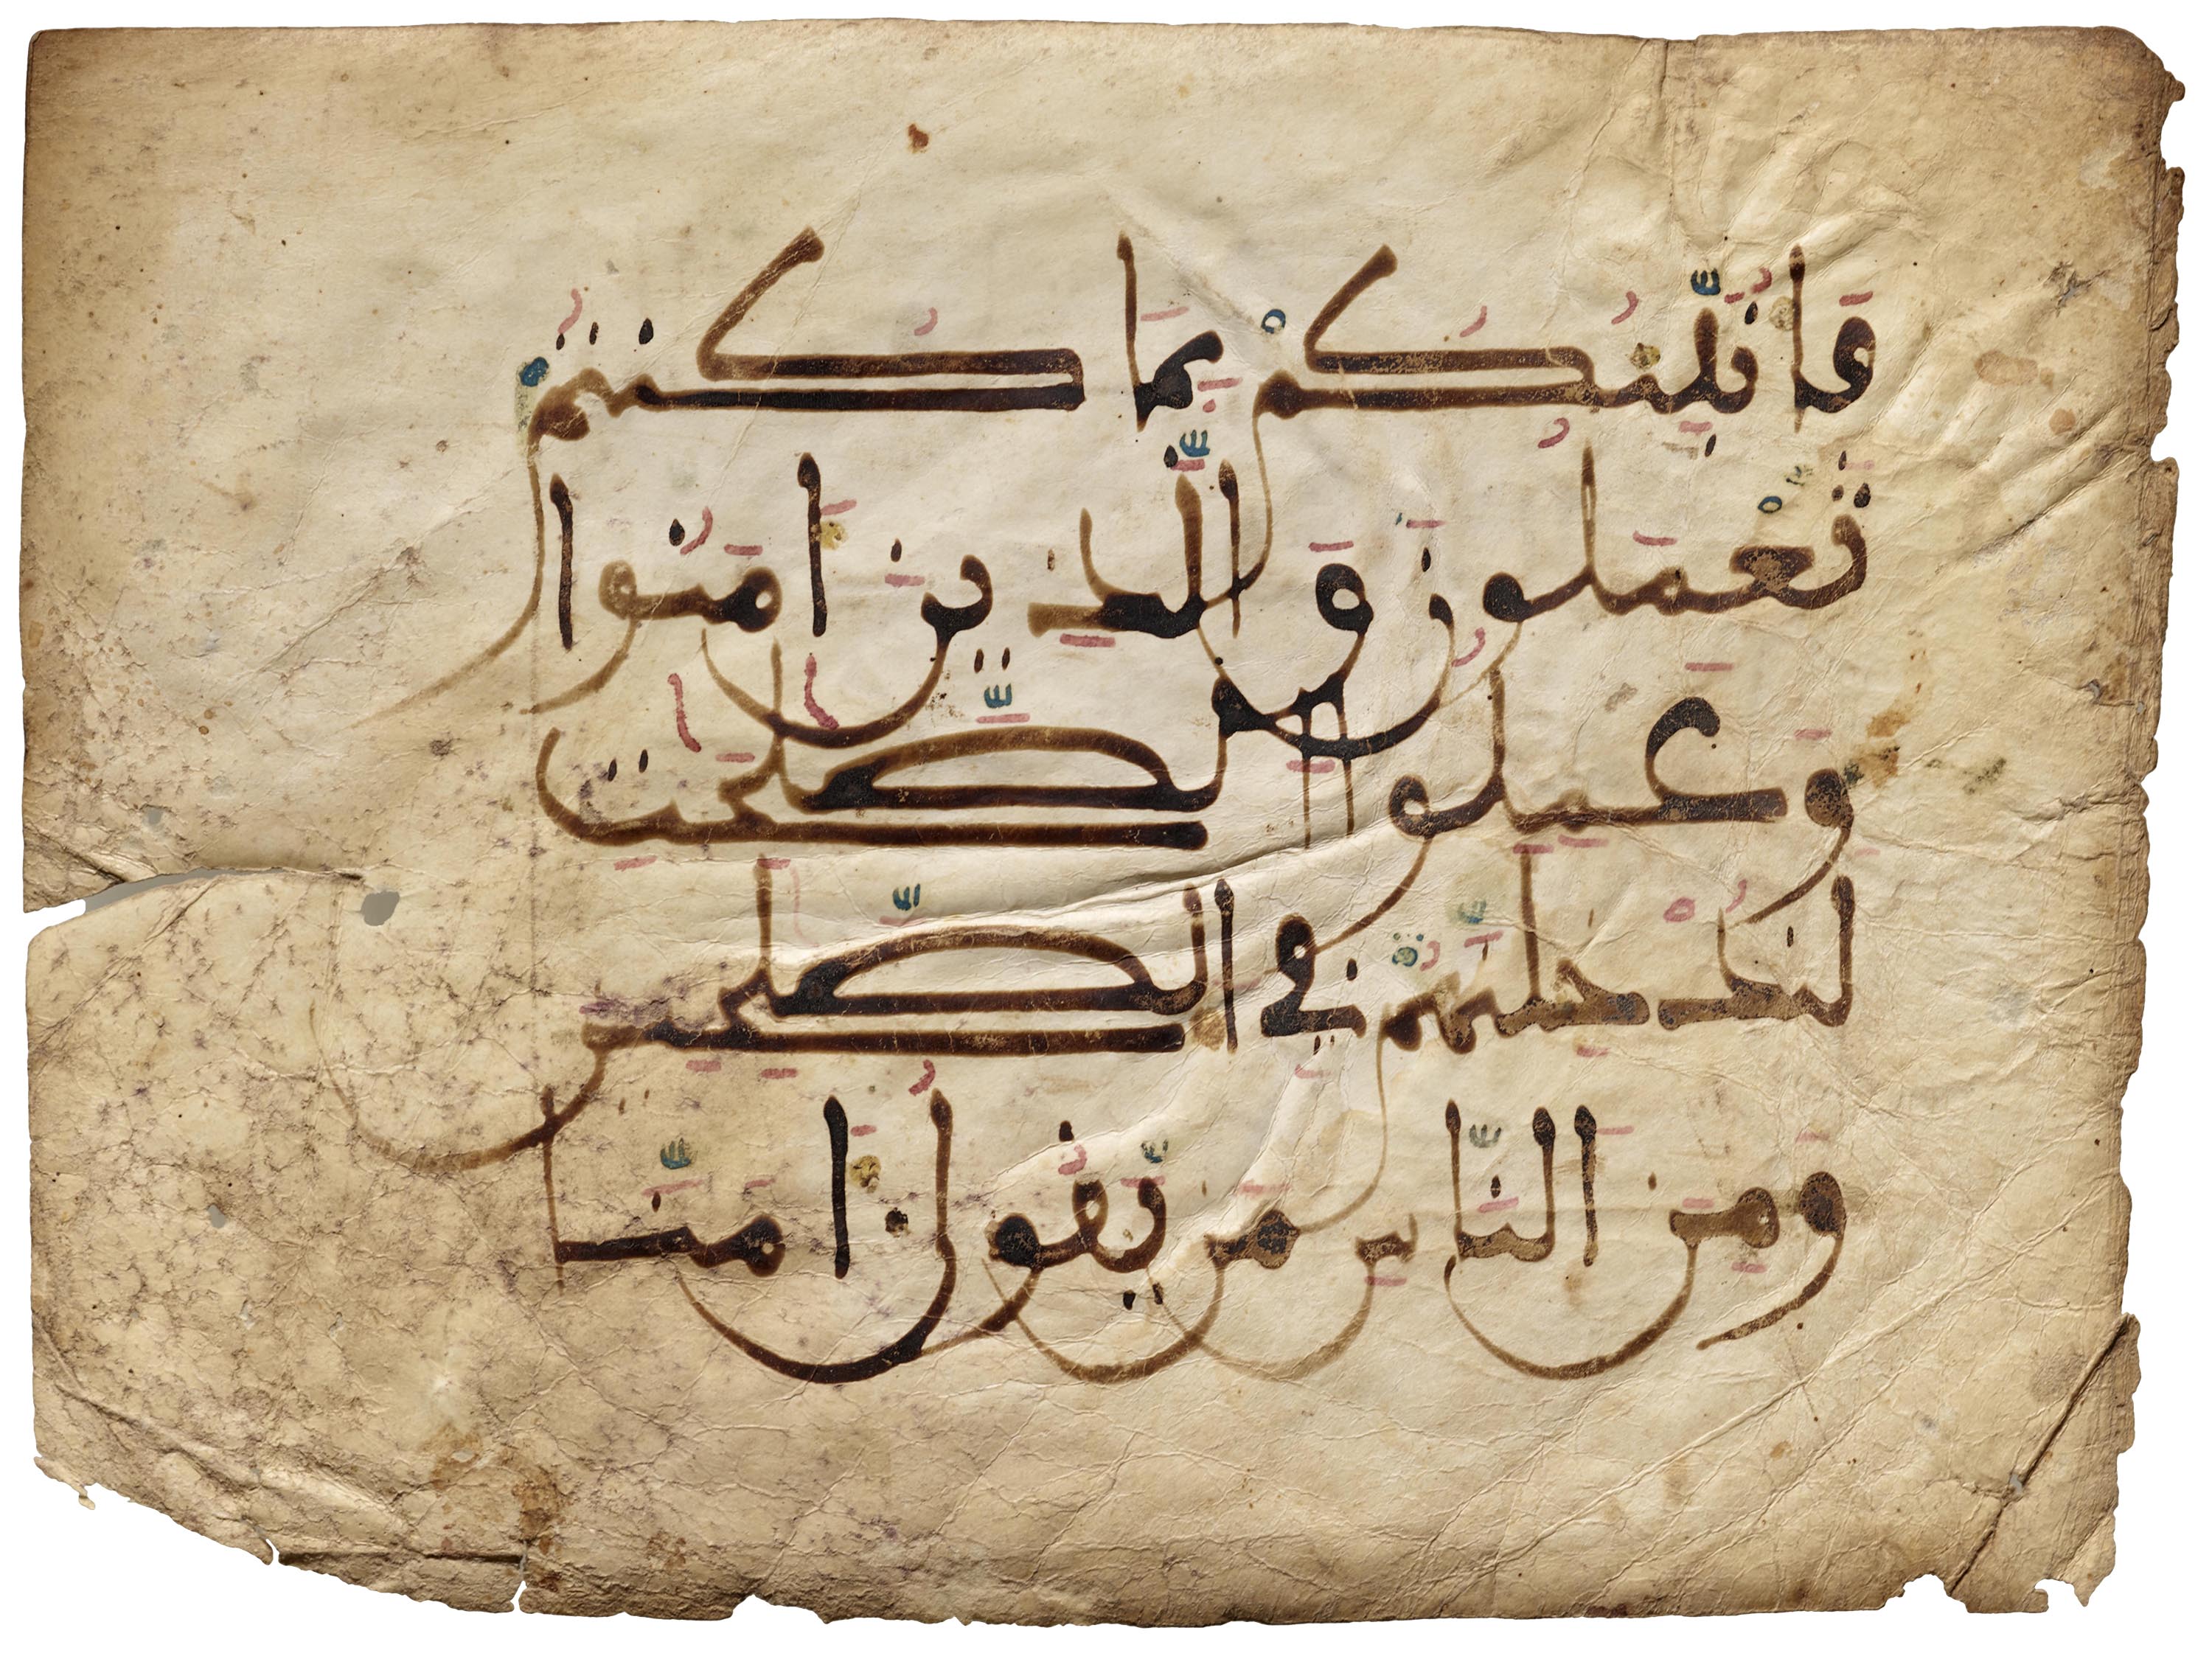 فَأُنَبِّئُكُمْ بِمَا كُنتُمْ
تَعْمَلُونَ وَالَّذِينَ ءَامَنُوا
وَعَمِلُوا الصَّٰلِحَٰتِ
لَنُدْخِلَنَّهُمْ فِي الصَّٰلِحِينَ
وَمِنَ النَّاسِ مَن يَّقُولُ ءَامَنَّا